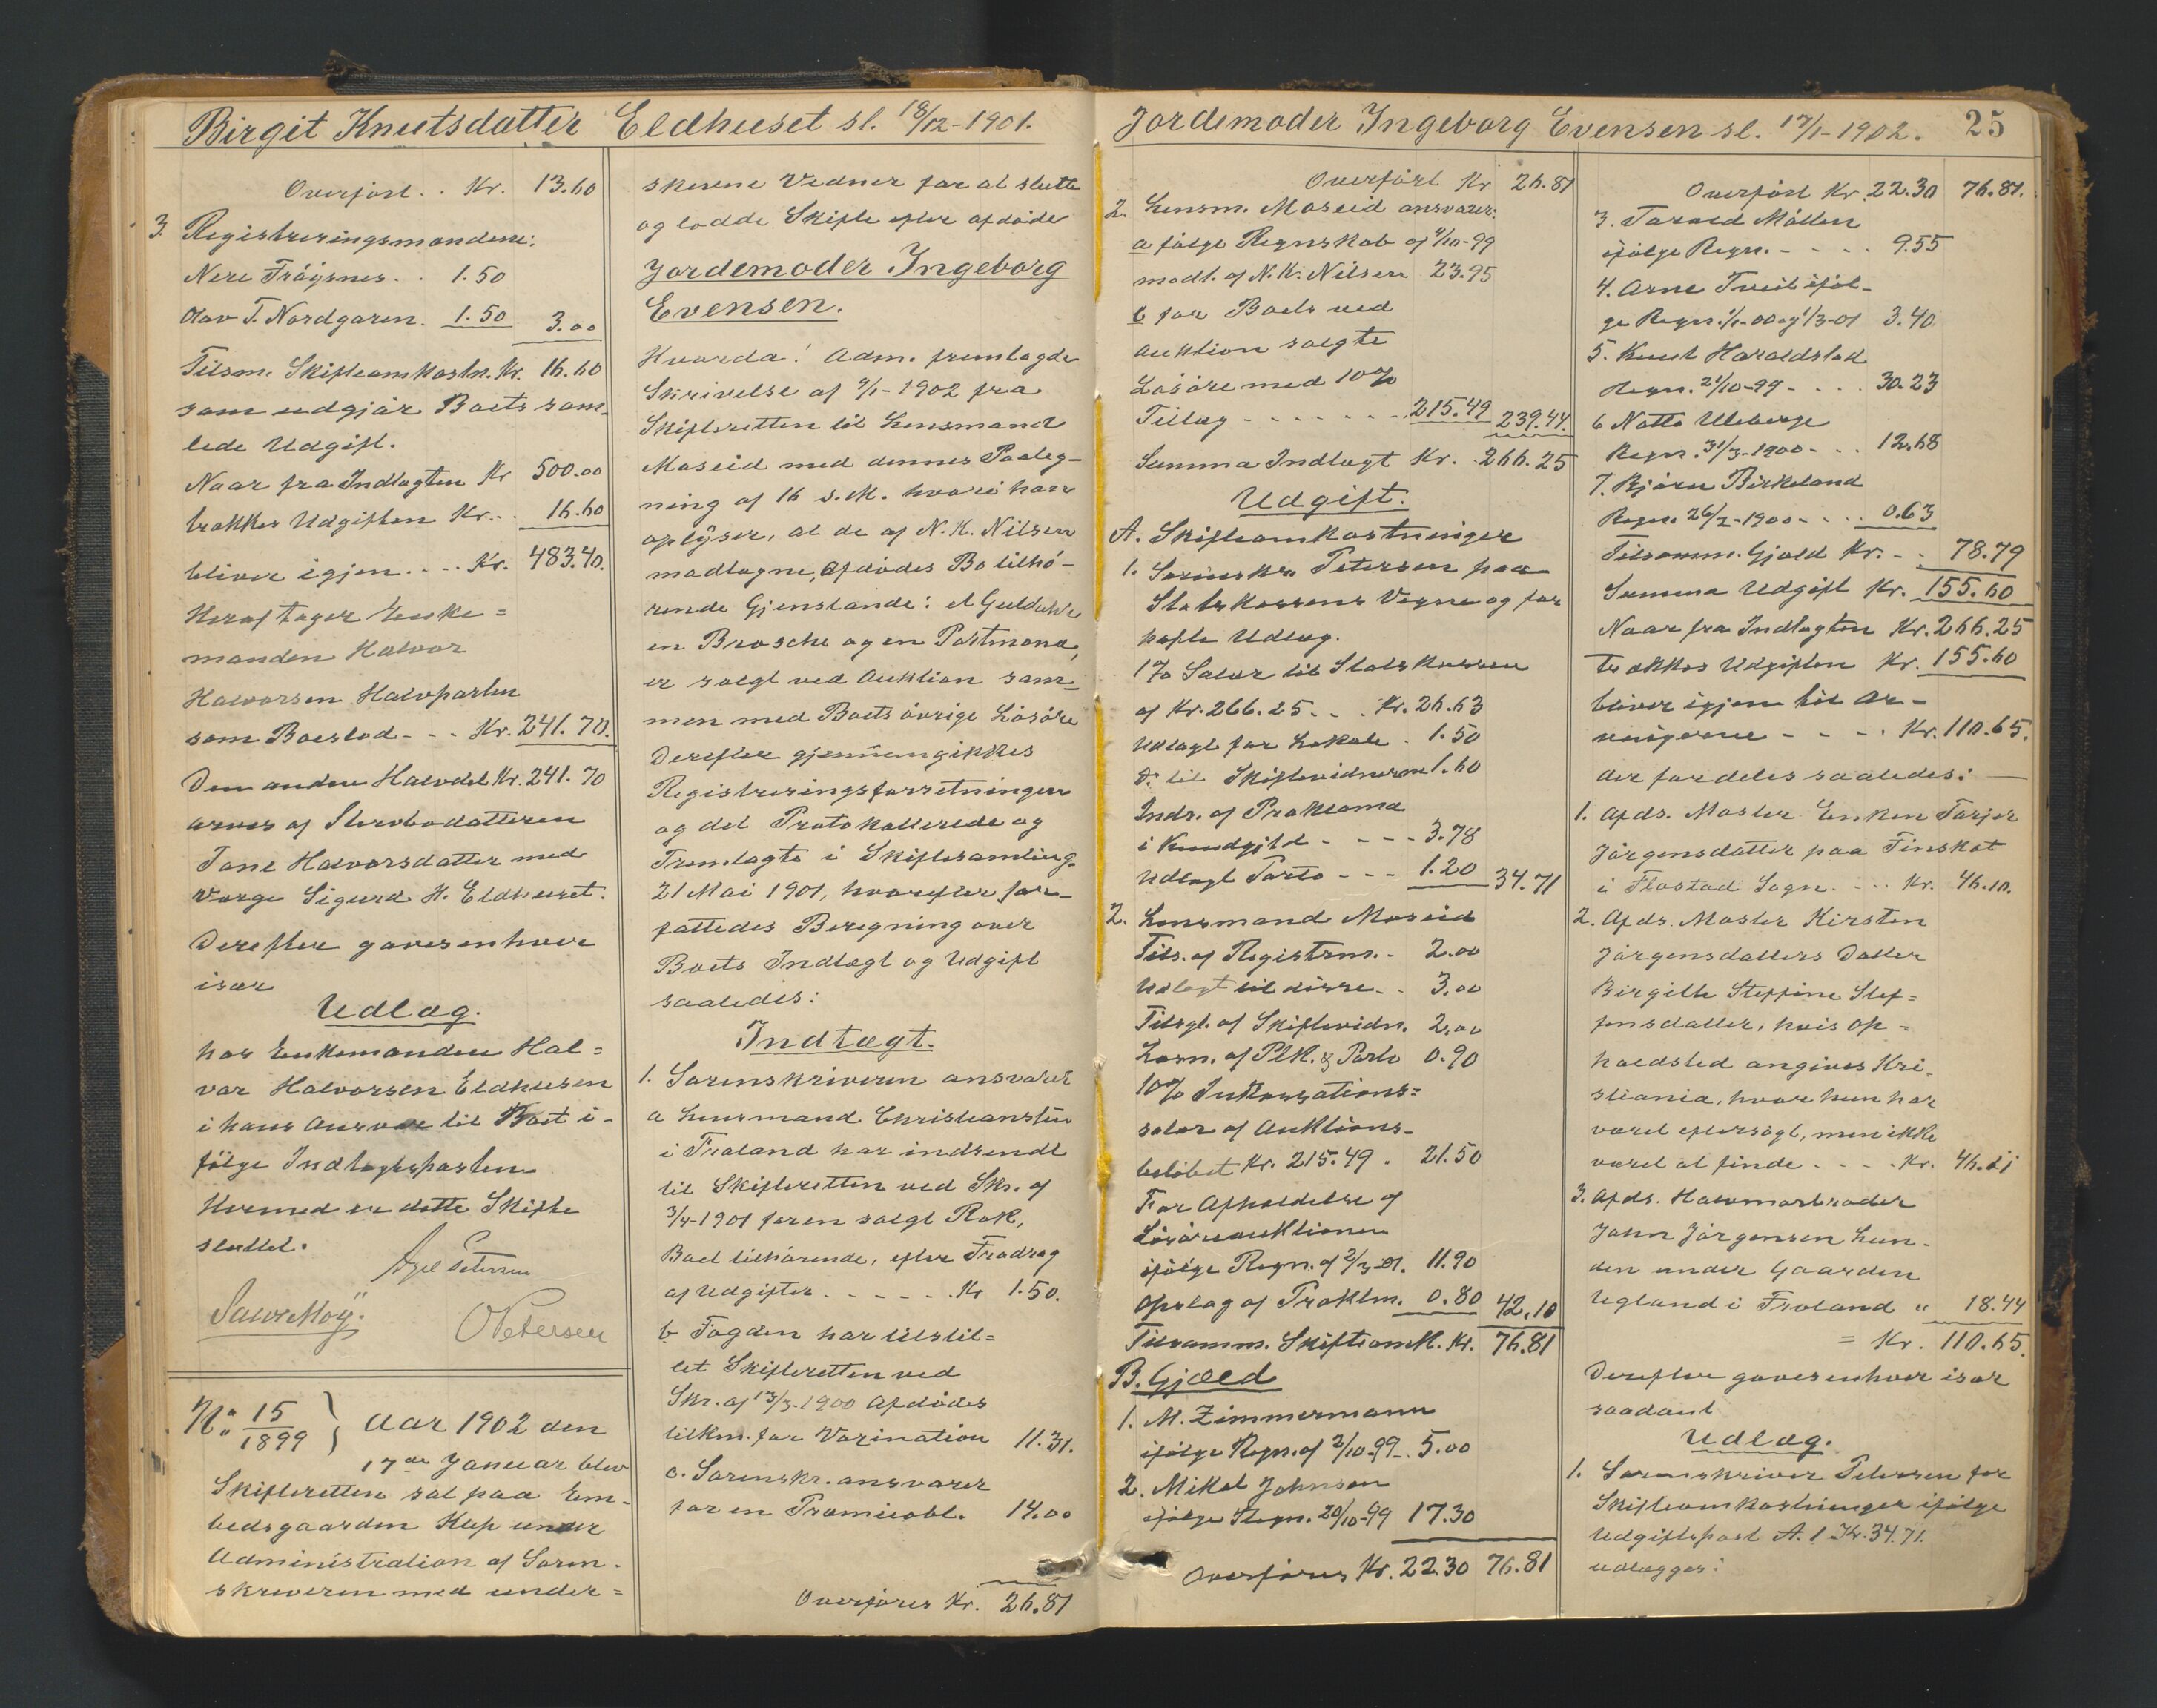 Birgit Knutsdatter Eldhuset sl. 18/12-1901.
Overført . . Kr. 13.60
3. Registreringsmændene:
Nere Frøysnes . . 1.50
Olav T. Nordgaren. 1.50 3.00
Tilsm. Skifteomkostn. Kr. 16.60
som udgjør Boets sam-
lede Udgift.
Naar fra Indtægten Kr 500.00
trækkes Udgiften Kr. . . 16.60
bliver igjen . . . . Kr. 483.40.
Heraf tager Enke=
manden Halvor
Halvorsen Halvparten
som Boeslod - - - Kr. 241.70.
Den anden Halvdel Kr. 241.70
arves af Stervbodatteren
Tone Halvorsdatter med
Værge Sigurd H. Eldhuset.
Derefter gaves enhver
især
Udlæg.
hos Enkemanden Hal=
vor Halvorsen Eldhusen
i hans Ansvar til Boet i-
følge Indtægtsposten
Hermed er dette Skifte
sluttet.
Axel Petersen
OPetersen
No. 15/1899 } Aar 1902 den
17de Januar blev
Skifteretten sat paa Em-
bedsgaarden Klep under
Administration af Soren-
skriveren med under=
skrevne Vidner for at slutte
og lodde Skifte efter afdøde
Jordemoder Ingeborg
Evensen.
Hvorda! Adm. fremlagde
Skrivelse af 9/1-1902 fra
Skifteretten til Lensmand
Moseid med dennes Paateg-
ning af 16 s.M. hvori han
oplyser, at de af N. K. Nilsen
modtagne, Afdødes Bo tilhø-
rende Gjenstande: et Guldur
en Brosche og en Portmonæ,
er solgt ved Auktion sam-
men med Boets øvrige Løsøre
Derefter gjennemgikkes
Registreringsforretningen
og det Protokollerede og
Fremlagte i Skiftesamling
21 Mai 1901, hvorefter for-
fattedes Beregning over
Boets Indtægt og Udgift
saaledes:
Indtægt.
1. Sorenskriveren ansvarer
a Lensmand Christianssen
i Froland har indsendt
til Skifteretten ved Skr. af
3/4-1901 for en solgt Rok,
Boet tilhørende, efter Fradrag
af Udgifter . . . . . . . Kr 1.50.
b Fogden har tilstil=
let Skifteretten ved
Skr. af 13/3-1900 Afdødes
tilkm. for Vaxination 11.31.
c. Sorenskr. ansvarer
for en Præmieobl. 14.00
Overføres Kr. 26.81
Jordemoder Ingeborg Evensen sl. 17/1-1902. 25
Overført Kr 26.81
2. Lensm. Moseid ansvarer:
a følge Regnskab af 4/10-99
modt. af N. K. Nilsen 23.95
b for Boets ved
Auktion solgte
Løsøre med 10%
Tillæg - - - - - - - 215.49 239.44.
Summa Indtægt Kr. . 266.25
Udgift.
A. Skifteomkostninger
1. Sorenskr. Petersen paa
Statskassens Vegne og for
hafte Udlæg.
1% Salær til Statskassen
af Kr. 266.25 . . . Kr. 26.63
Udlagt for Lokale . 1.50
Do til Skiftevidnerne 1.60
Indr. af Proklama
i Kundgjld - - - - 3.78
Udlagt Porto - - - 1.20 34.71
2. Lensmand Moseid
Tils. af Registrm. - 2.00
Udlagt til disse - . 3.00
Tilsgt. af Skiftevidn. 2.00
Læsn. af Plk. & Porto 0.90
10% Inkassations=
salær af Auktions-
beløbet Kr. 215.49 . 21.50
For Afholdelse af
Løsøreauktionen
ifølge Regn. af 2/3-01. 11.90
Opslag af Proklm. 0.80 42.10
Tilsamm. Skifteomk. Kr. 76.81
B. Gjæld
1. M. Zimmermann
ifølge Regn. af 2/10-99 - 5.00
2. Mikal Johnsen
ifølge Regn. 20/10-99 17.30
Overføres Kr. 22.30 76.81
Overført Kr. 22.30 76.81.
3. Tarald Møllen
ifølge Regn. - - - - 9.55
4. Arne Tveit iføl-
ge Regn. 1/1-00 og 1/3-01 3.40
5. Knut Haraldstad
Regn. 21/10-99 - . . . 30.23
6 Notto Uleberge
Regn. 31/3-1900 - . . 12.68
7. Bjørn Birkeland
Regn. 26/2-1900 - . . . 0.63
Tilsamm. Gjæld Kr. - - 78.79
Summa Udgift Kr. 155.60
Naar fra Indtægten Kr. 266.25
trækkes Udgiften Kr. 155.60
bliver igjen til Ar-
vingerne - - - - Kr. 110.65.
der fordeles saaledes:
1. Afds. Moster Enken Torjer
Jørgensdatter paa
i Flostad Sogn. - - - Kr. 46.10.
2. Afds. Moster Kirsten
Jørgensdatters Datter
Birgitte Steffine Stef=
fensdatter, hvis Op-
holdsted angives Kri-
stiania, hvor hun har
været eftersøgt, men ikke
været at finde - - - . Kr. 46.11
3. Afds. Halvmorbroder
John Jørgensen Lun-
den under Gaarden
Ugland i Froland " 18.44
= Kr. 110.65.
Derefter gaves enhver især
saadant
Udlæg.
1. Sorenskriver Petersen for
Skifteomkostninger ifølge
Udgiftspost A. 1 Kr. 34.71.
udlægges: